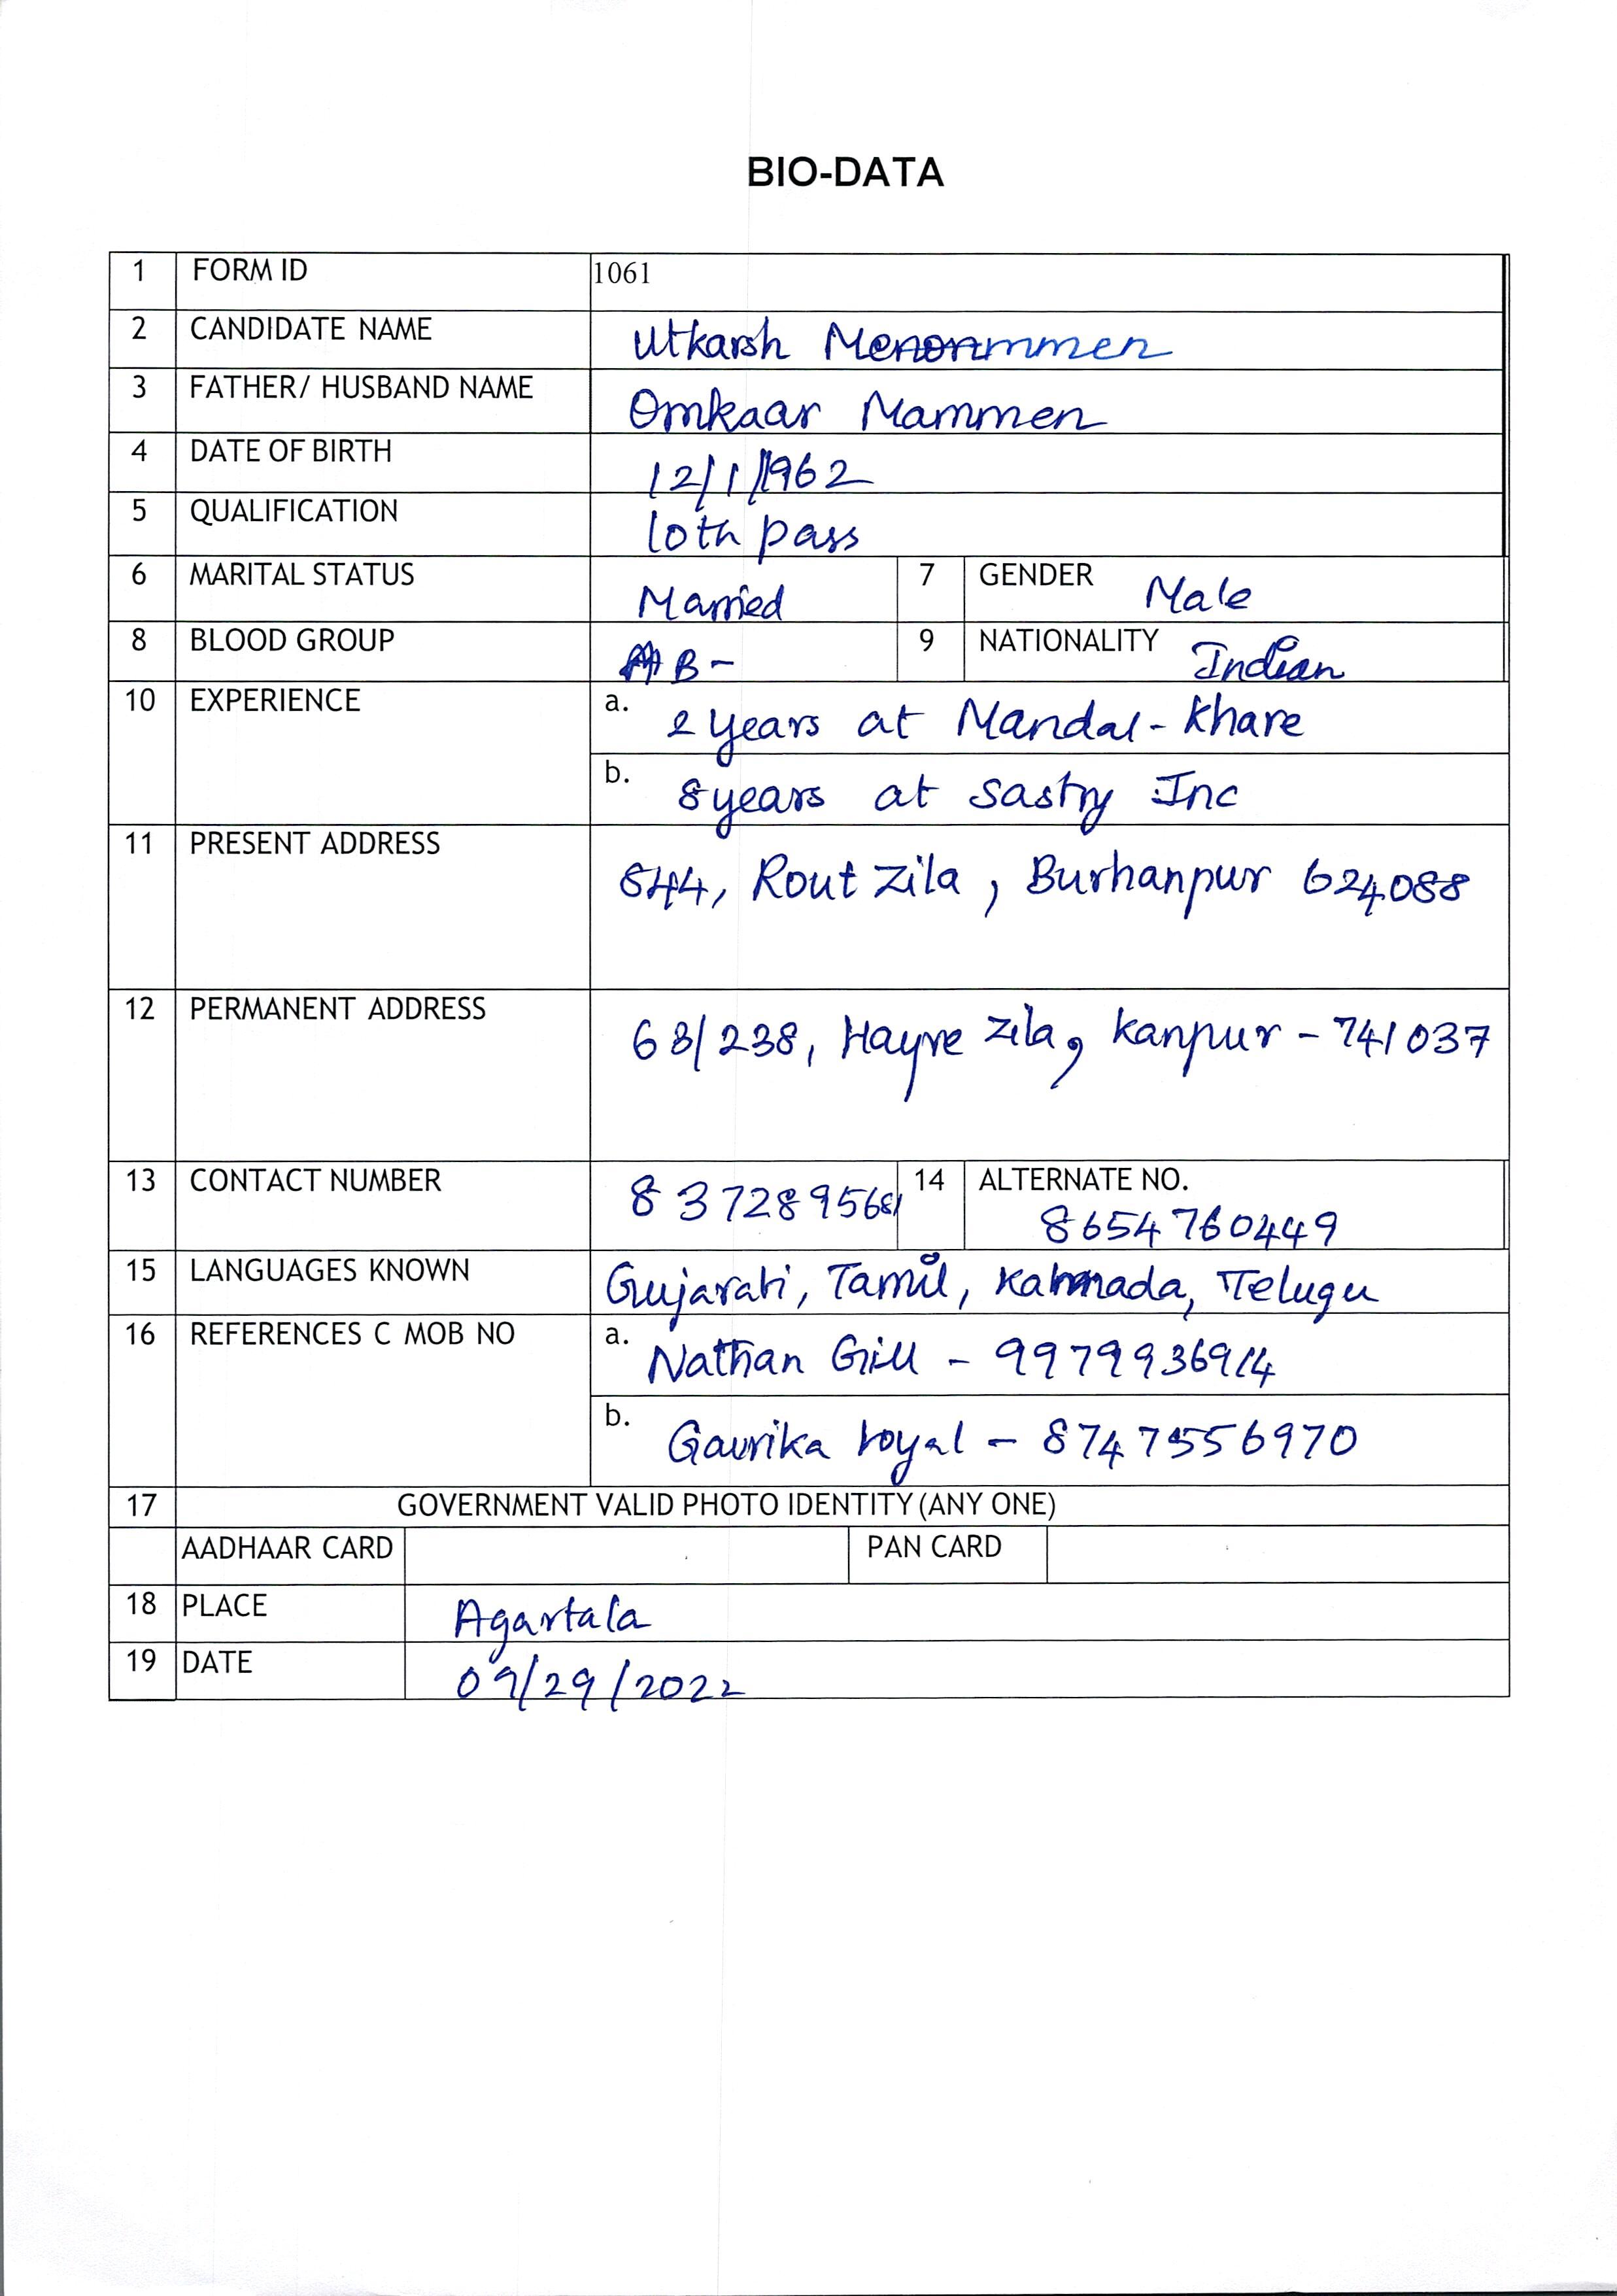 BIO-DATA
1 FORM ID 1061
2 CANDIDATE NAME Utkarsh
3 FATHER/ HUSBAND NAME Omkaar Mammen
4 DATE OF BIRTH 12/1/1962
5 QUALIFICATION 10th pass
6 MARITAL STATUS Married 7 GENDER Male
8 BLOOD GROUP AB- 9 NATIONALITY Indian
10 EXPERIENCE a. 2 years at Mandal-Khare
b. 8 years at Sastry Inc
11 PRESENT ADDRESS 844, Rout Zila, Burhanpur 624088
12 PERMANENT ADDRESS 68/238, Hayre Zila, Kanpur - 741037
13 CONTACT NUMBER 8372895681 14 ALTERNATE NO.
8654760449
15 LANGUAGES KNOWN Gujarati, Tamil, Kannada, Telugu
16 REFERENCES C MOB NO a. Nathan Gill - 9979936914
b. Gaurika - 8747556970
17 GOVERNMENT VALID PHOTO IDENTITY (ANY ONE)
AADHAAR CARD PAN CARD
18 PLACE Agartala
19 DATE 09/29/2022